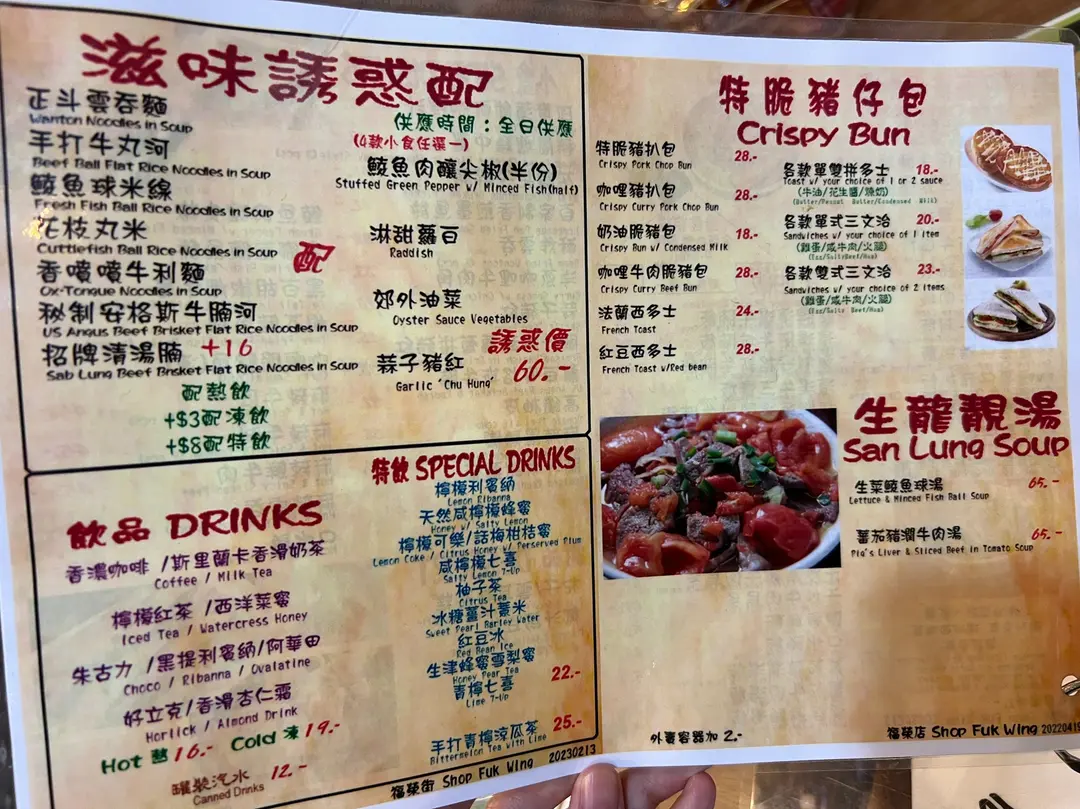 滋味誘惑配
供應時間：全日供應
正斗雲吞麵
Wanton Noodles in Soup
手打牛丸河
Beef Ball Flat Rice Noodles in Soup
鯪魚球米線
Fresh Fish Ball Rice Noodles in Soup
花枝丸米
Cuttlefish Ball Rice Noodles in Soup
香噴噴牛利麵
Ox-Tongue Noodles in Soup
秘制安格斯牛腩河
US Angus Beef Brisket Flat Rice Noodles in Soup
招牌清湯腩 +16
Sab Lung Beef Brisket Flat Rice Noodles in Soup
配熱飲
+$3配凍飲
+$8配特飲
配
(4款小食任選一)
鯪魚肉釀尖椒(半份)
Stuffed Green Pepper w/ Minced Fish(half)
淋甜蘿白
Raddish
郊外油菜
Oyster Sauce Vegetables
蒜子豬紅
Garlic 'Chu Hung'
誘惑價
60.-
飲品 DRINKS
香濃咖啡 /斯里蘭卡香滑奶茶
Coffee / Milk Tea
檸檬紅茶 /西洋菜蜜
Iced Tea / Watercress Honey
朱古力 /黑提利賓納/阿華田
Choco / Ribanna / Ovalatine
好立克/香滑杏仁霜
Horlick / Almond Drink
Hot 熱 16.- Cold 凍 19.-
罐裝汽水 12.-
Canned Drinks
特飲 SPECIAL DRINKS
檸檬利賓納
Lemon Ribanna
天然咸檸檬蜂蜜
Honey w/ Salty Lemon
檸檬可樂/話梅柑桔蜜
Lemon Coke / Citrus Honey w/ Perserved Plum
咸檸檬七喜
Salty Lemon 7-Up
柚子茶
Citrus Tea
冰糖薑汁薏米
Sweet Pearl Barley Water
紅豆冰
Red Bean Ice
生津蜂蜜雪梨蜜
Honey Pear Tea
青檸七喜
Lime 7-Up
22.-
手打青檸涼瓜茶 25.-
Bittermelon Tea with Lime
福榮街 Shop Fuk Wing 20230213
特脆豬仔包
Crispy Bun
特脆豬扒包 28.-
Crispy Pork Chop Bun
咖哩豬扒包 28.-
Crispy Curry Pork Chop Bun
奶油脆豬包 18.-
Crispy Bun w/ Condensed Milk
咖哩牛肉脆豬包 28.-
Crispy Curry Beef Bun
法蘭西多士 24.-
French Toast
紅豆西多士 28.-
French Toast w/Red bean
各款單雙拼多士 18.-
Toast w/ your choice of 1 or 2 sauce
(牛油/花生醬/煉奶)
(Butter/Peanut Butter/Condensed Milk)
各款單式三文治 20.-
Sandwiches w/ your choice of 1 item
(雞蛋/咸牛肉/火腿)
(Egg/SaltyBeef/Ham)
各款雙式三文治 23.-
Sandwiches w/ your choice of 2 items
(雞蛋/咸牛肉/火腿)
(Egg/Salty Beef/Ham)
生龍靚湯
San Lung Soup
生菜鯪魚球湯 65.-
Lettuce & Minced Fish Ball Soup
蕃茄豬潤牛肉湯 65.-
Pig's Liver & Sliced Beef in Tomato Soup
外賣容器加 2.-
福榮店 Shop Fuk Wing 20220419